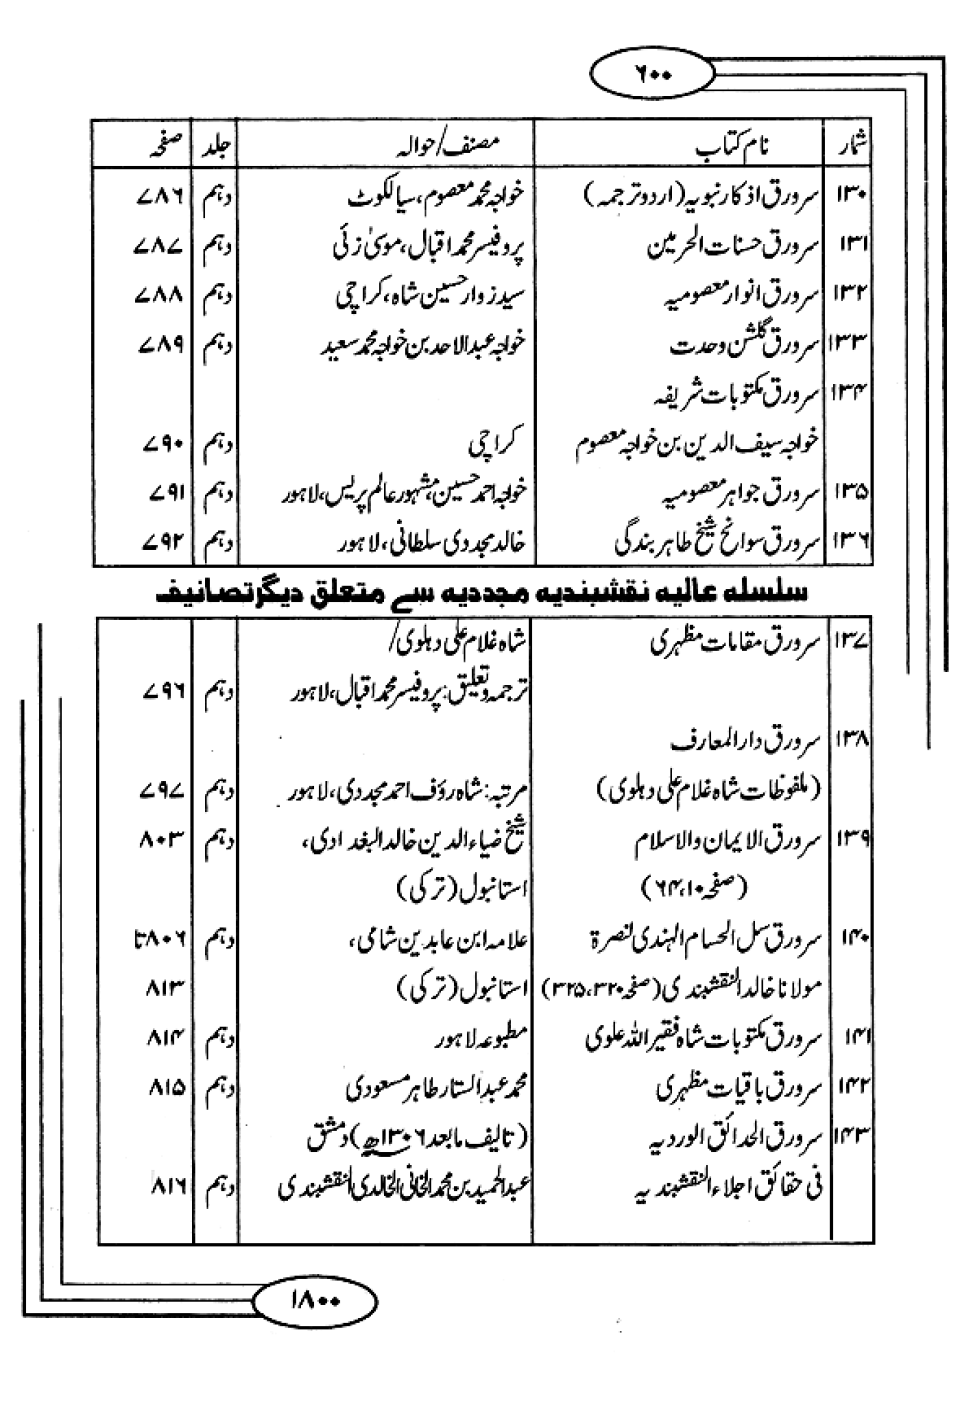 ۶۰۰
شمار نام کتاب مصنف/حوالہ جلد صفحہ
۱۳۰ سرورق اذکار نبویہ (اردو ترجمہ) خواجہ محمد معصوم، سیالکوٹ دہم ۷۸۶
۱۳۱ سرورق حسنات الحرمین پروفیسر محمد اقبال، موسیٰ زئی دہم ۷۸۷
۱۳۲ سرورق انوار معصومیہ سید زوار حسین شاہ، کراچی دہم ۷۸۸
۱۳۳ سرورق گلشن وحدت خواجہ عبدالاحد بن خواجہ محمد سعید دہم ۷۸۹
۱۳۴ سرورق مکتوبات شریفہ
خواجہ سیف الدین بن خواجہ معصوم کراچی دہم ۷۹۰
۱۳۵ سرورق جواہر معصومیہ خواجہ احمد حسین، مشہور عالم پریس، لاہور دہم ۷۹۱
۱۳۶ سرورق سوانح شیخ طاہر بندگی خالد مجددی سلطانی، لاہور دہم ۷۹۲
سلسلہ عالیہ نقشبندیہ مجددیہ سے متعلق دیگر تصانیف
۱۳۷ سرورق مقامات مظہری شاہ غلام علی دہلوی/
ترجمہ و تعلیق: پروفیسر محمد اقبال، لاہور دہم ۷۹۶
۱۳۸ سرورق دار المعارف
(ملفوظات شاہ غلام علی دہلوی) مرتبہ: شاہ رؤف احمد مجددی، لاہور دہم ۷۹۷
۱۳۹ سرورق الایمان والاسلام شیخ ضیاء الدین خالد البغدادی، دہم ۸۰۳
(صفحہ ۱۰، ۶۴) استانبول (ترکی)
۱۴۰ سرورق سل الحسام الہندی لنصرۃ علامہ ابن عابدین شامی، دہم ۸۰۶ تا
مولانا خالد النقشبندی (صفحہ ۳۲۰، ۳۲۵) استانبول (ترکی) ۸۱۳
۱۴۱ سرورق مکتوبات شاہ فقیر اللہ علوی مطبوعہ لاہور دہم ۸۱۴
۱۴۲ سرورق باقیات مظہری محمد عبدالستار طاہر مسعودی دہم ۸۱۵
۱۴۳ سرورق الحدائق الوردیہ (تالیف مابعد ۱۳۰۶ھ) دمشق
فی حقائق اجلاء النقشبندیہ عبدالحمید بن محمد الخانی الخالدی النقشبندی دہم ۸۱۶
۱۸۰۰